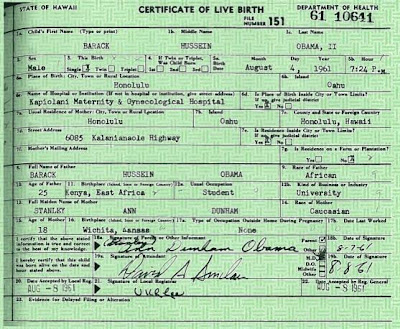 STATE OF HAWAII CERTIFICATE OF LIVE BIRTH DEPARTMENT OF HEALTH
FILE NUMBER 151 61 10641
1a. Child's First Name (Type or print) 1b. Middle Name 1c. Last Name
BARACK HUSSEIN OBAMA, II
2. Sex 3. This Birth 4. If Twin or Triplet, Was Child Born 5a. Birth Date Month Day Year 5b. Hour
Male Single Twin Triplet 1st 2nd 3rd August 4, 1961 7:24 P.M.
6a. Place of Birth: City, Town or Rural Location 6b. Island
Honolulu Oahu
6c. Name of Hospital or Institution (If not in hospital or institution, give street address) 6d. Is Place of Birth Inside City or Town Limits? If no, give judicial district
Kapiolani Maternity & Gynecological Hospital Yes No
7a. Usual Residence of Mother: City, Town or Rural Location 7b. Island 7c. County and State or Foreign Country
Honolulu Oahu Honolulu, Hawaii
7d. Street Address 7e. Is Residence Inside City or Town Limits? If no, give judicial district
6085 Kalanianaole Highway Yes No
7f. Mother's Mailing Address 7g. Is Residence on a Farm or Plantation?
Yes No
8. Full Name of Father 9. Race of Father
BARACK HUSSEIN OBAMA African
10. Age of Father 11. Birthplace (Island, State or Foreign Country) 12a. Usual Occupation 12b. Kind of Business or Industry
25 Kenya, East Africa Student University
13. Full Maiden Name of Mother 14. Race of Mother
STANLEY ANN DUNHAM Caucasian
15. Age of Mother 16. Birthplace (Island, State or Foreign Country) 17a. Type of Occupation Outside Home During Pregnancy 17b. Date Last Worked
18 Wichita, Kansas None
I certify that the above stated information is true and correct to the best of my knowledge. 18a. Signature of Parent or Other Informant Parent Other 18b. Date of Signature
(Stanley) Ann Dunham Obama 8-7-61
I hereby certify that this child was born alive on the date and hour stated above. 19a. Signature of Attendant M.D. D.O. Midwife Other 19b. Date of Signature
David A Sinclair 8-8-61
20. Date Accepted by Local Reg. 21. Signature of Local Registrar 22. Date Accepted by Reg. General
AUG -8 1961 U K Lee AUG -8 1961
23. Evidence for Delayed Filing or Alteration